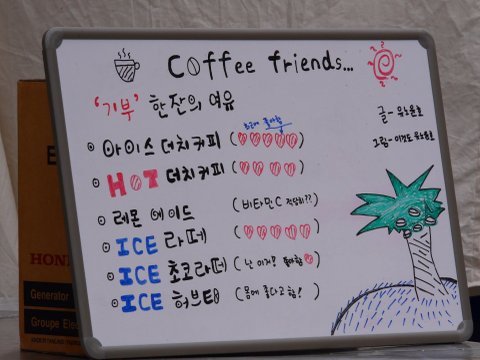 Coffee friends...
'기부' 한잔의 여유
글- 유노윤호
그림- 이것도 유노윤호
아이스 더치커피 (♡♡♡♡♡)
HOT 더치커피 (♡♡♡♡)
레몬 에이드 (비타민C 적당히??)
ICE 라떼 (♡♡♡♡♡)
ICE 초코라떼 (난 이거! 좋아함)
ICE 허브티 (몸에 좋다고 함!)
HOND
Generator
Groupe Elec